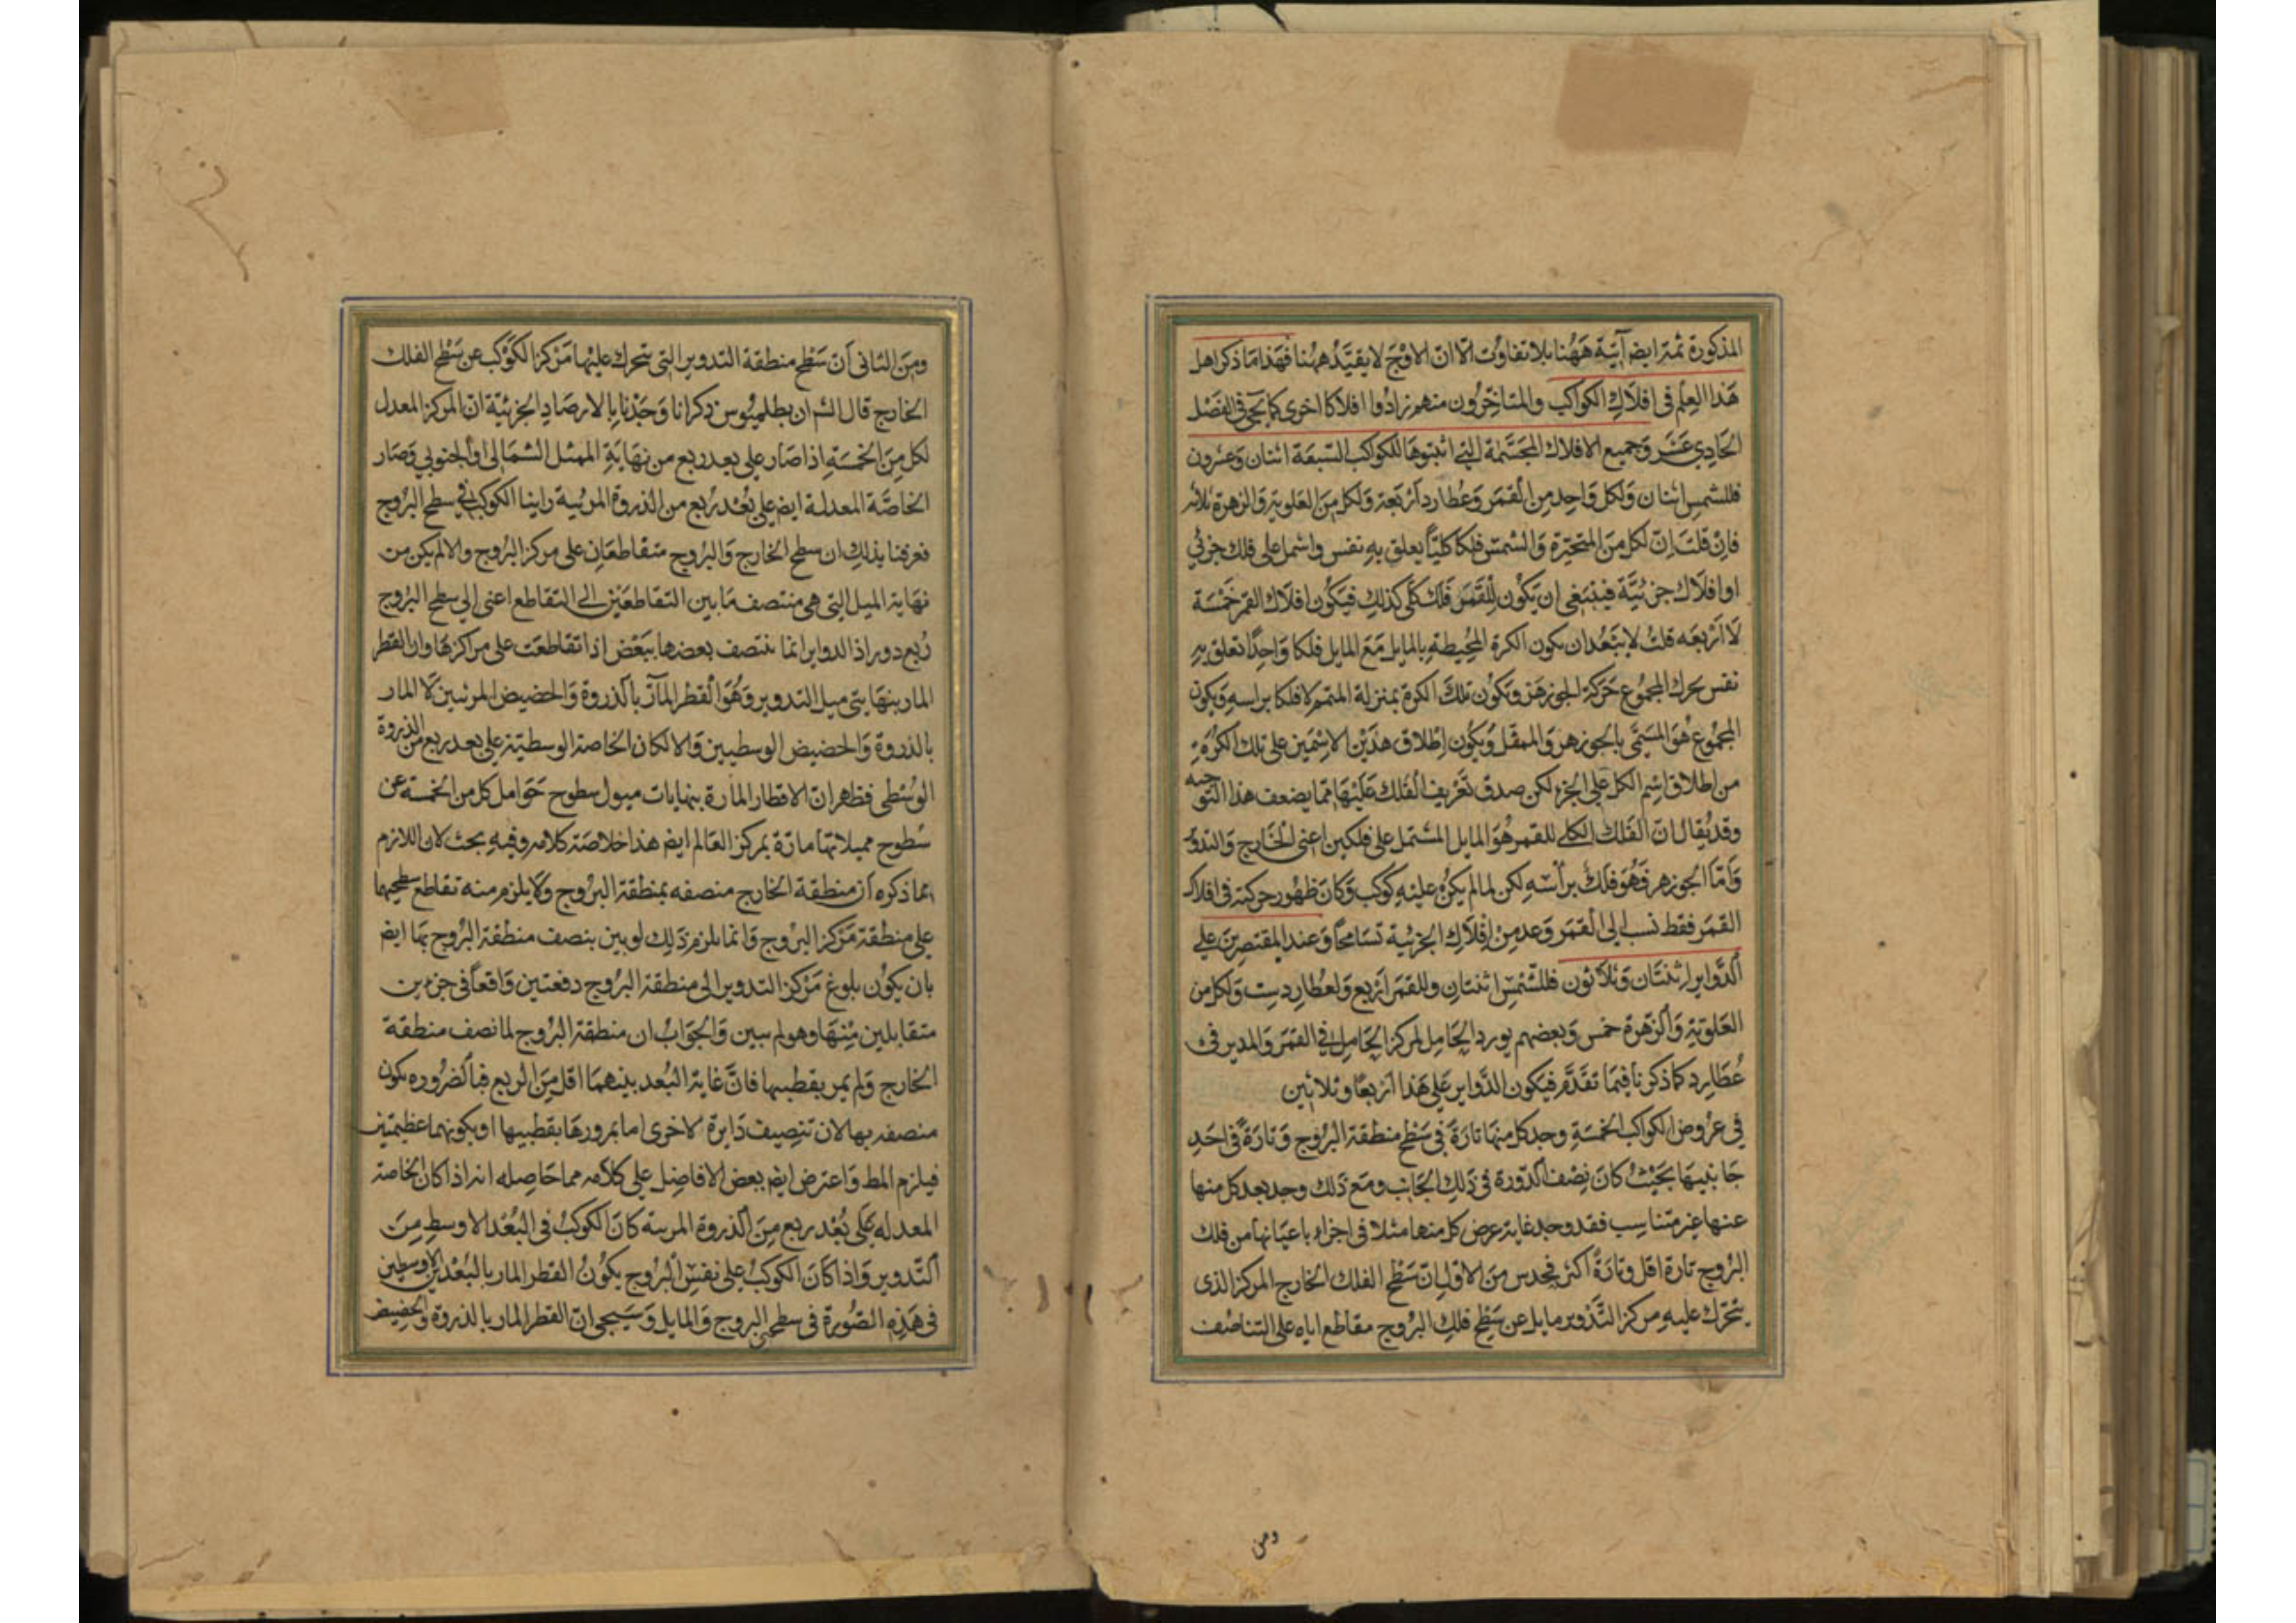 المذكورة ثمه ايض آتية ههنا بلا تفاوت الا ان الاوج لا يقيد ههنا فهذا ما ذكر اهل
هذا العلم في افلاك الكواكب والمتاخرون منهم زادوا افلاكا اخرى كما يجئ في الفصل
الحادي عشر وجميع الافلاك المجسمة التي اثبتوها للكواكب السبعة اثنان وعشرون
فللشمس اثنان ولكل واحد من القمر وعطارد اربعة ولكل من العلوية والزهرة ثلاثه
فان قلت ان لكل من المتحيرة والشمس فلكا كليا يعلق به نفس واشمل على فلك جزئي
او افلاك جزئية فينبغي ان يكون للقمر فلك كلي كذلك فيكون افلاك القمر خمسة
لا اربعه قلت لا يبعد ان يكون الكرة المحيطة بالمايل مع المايل فلكا واحدا تعلق به
نفس يحرك المجموع حركة الجوزهر وتكون تلك الكرة بمنزلة المتمم لا فلكا براسه ويكون
المجموع هو المسمى بالجوزهر والممثل ويكون اطلاق هذين الاسمين على تلك الكرة
من اطلاق اسم الكل على الجزء لكن صدق تعريف الفلك عليها مما يضعف هذا التوجيه
وقد يقال ان الفلك الكلي للقمر هو المايل المشتمل على فلكين اعني الخارج والتدوير
واما الجوزهر فهو فلك برأسه لكن لما لم يكن عليه كوكب وكان ظهور حركته في افلاك
القمر فقط نسب الى القمر وعد من افلاك الجزئية تسامحا وعند المقتصرين على
الدواير اثنتان وثلاثون فللشمس اثنتان وللقمر اربع ولعطارد ست ولكل من
العلوية والزهرة خمس وبعضهم يورد الحامل لمركز الحامل في القمر والمدير في
عطارد كما ذكرنا فيما تقدم فيكون الدواير على هذا اربعا وثلاثين
في عروض الكواكب الخمسة وجد كل منها تارة في سطح منطقة البروج وتارة في احد
جانبيها بحيث كان نصف الدورة في ذلك الجانب ومع ذلك وجد بعد كل منها
عنها غير متناسب فقد وجد غاية عرض كل منها مثلا في اجزاء باعيانها من فلك
البروج تارة اقل وتارة اكثر فحدس من الاول بان سطح الفلك الخارج المركز الذي
يتحرك عليه مركز التدوير مايل عن سطح فلك البروج مقاطع اياه على التناصف
ومن
ومن الثاني أن سطح منطقة التدوير التي تتحرك عليها مركز الكوكب عن سطح الفلك
الخارج قال الش ان بطلميوس ذكر انا وجدنا بالارصاد الجزئية ان المركز المعدل
لكل من الخمسة اذا صار على بعد ربع من نهاية الممثل الشمالي او الجنوبي وصار
الخاصة المعدلة ايض على بعد ربع من الذروة المرئية راينا الكوكب في سطح البروج
فعرفنا بذلك ان سطح الخارج والبروج متقاطعان على مركز البروج والا لم يكن من
نهاية الميل التي هي منتصف ما بين التقاطعين الى التقاطع اعني الى سطح البروج
ربع دور اذ الدواير انما تنتصف بعضها ببعض اذا تقاطعت على مراكزها وان القطر
المار بنهايتي ميل التدوير وهو القطر المار بالذروة والحضيض المرئيين لا المار
بالذروة والحضيض الوسطيين والا لكان الخاصة الوسطية على بعد ربع من الذروة
الوسطى فظهر ان الاقطار المارة بنهايات ميول سطوح حوامل كل من الخمسة عن
سطوح مميلاتها مارة بمركز العالم ايض هذا خلاصة كلامه وفيه بحث لان اللازم
مما ذكره أن منطقة الخارج منصفه بمنطقة البروج ولا يلزم منه تقاطع سطحيهما
على منطقة مركز البروج وانما يلزم ذلك لو بين بنصف منطقة البروج بها ايض
بان يكون بلوغ مركز التدوير الى منطقة البروج دفعتين واقعا في جزءين
متقابلين منها وهو لم يبين والجواب ان منطقة البروج لما نصف منطقة
الخارج ولم يمر بقطبيها فان غاية البعد بينهما اقل من الربع فبالضروره يكون
منصفه بها لان تنصيف دايرة لاخرى اما بمرورها بقطبيها او بكونهما عظيمتين
فيلزم المط واعترض ايض بعض الافاضل على كلامه مما حاصله انه اذا كان الخاصة
المعدله على بعد ربع من الذروة المرئية كان الكوكب في البعد الاوسط من
التدوير واذا كان الكوكب على نفس البروج يكون القطر المار بالبعدين الاوسطين
في هذه الصورة في سطحي البروج والمايل وسيجئ ان القطر المار بالذروة والحضيض